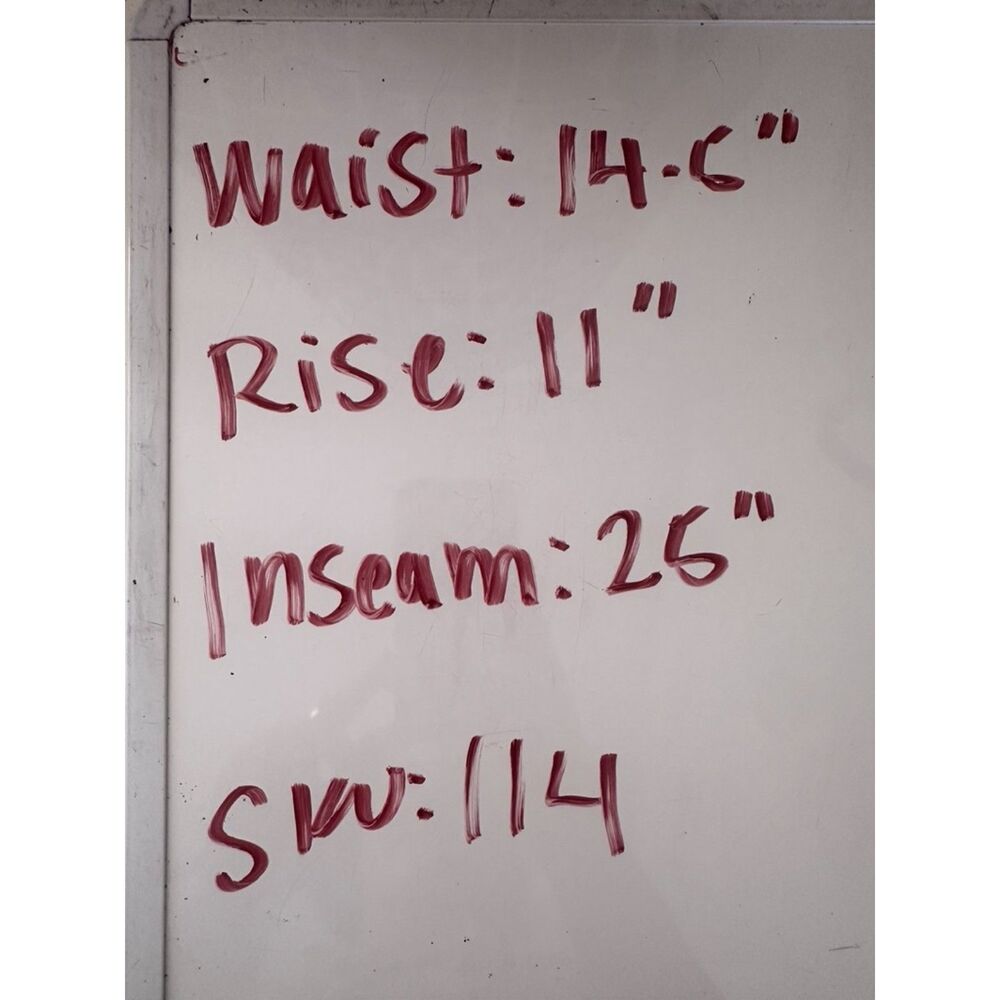 Waist: 14.5"
Rise: 11"
Inseam: 25"
SKU: 114